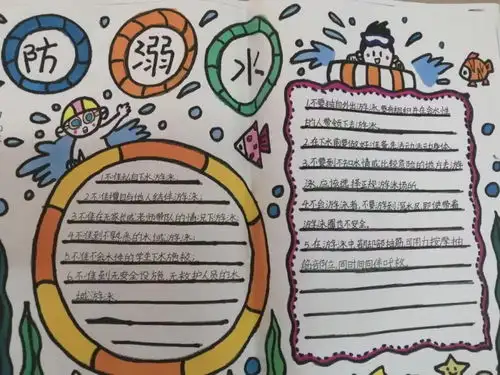 防溺水
1.不准私自下水游泳;
2.不准擅自与他人结伴游泳;
3.不准在无家长或老师带队的情况下游泳;
4.不准到不熟悉的水域游泳;
5.不准不会水性的学生下水施救;
6.不准到无安全设施、无救护人员的水
域游泳
1.不要独自外出游泳,要有组织并在会水性
的人带领下去游泳。
2.在下水前要做好准备
3.不要到不知水情或比较危险的地方去游
泳,应该选择正规游泳场所。
4.不会游泳者,不要游到深水区,即使带着
游泳圈也不安全。
5.在游泳中
同时向同伴呼救